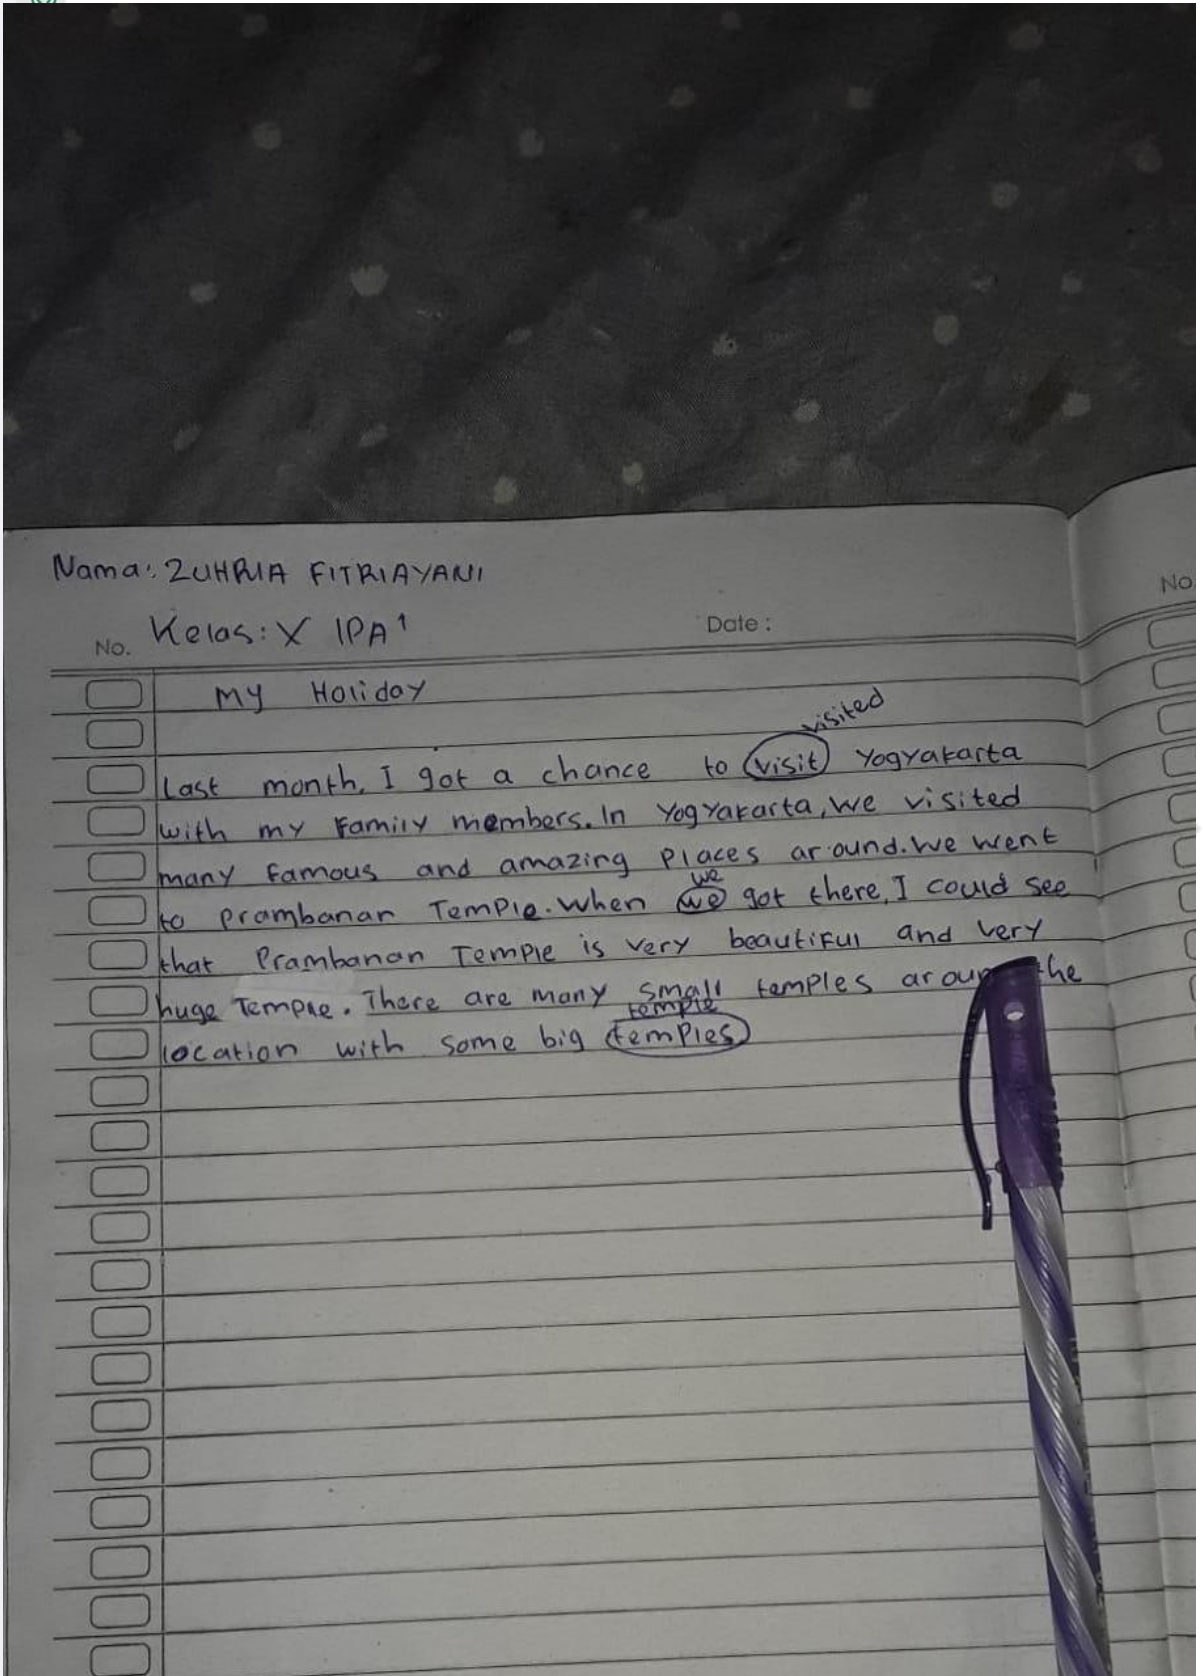 Nama: ZUHRIA FITRIAYANI
No. Kelas: X IPA 1 Date :
No
My Holiday
visited
Last month, I got a chance to visit Yogyakarta
with my Family members. In Yogyakarta, we visited
many Famous and amazing Places around. We went
we
to Prambanan Temple. When we got there, I could see
that Prambanan Temple is very beautiFul and very
huge Temple. There are many small temples around the
temple
location with some big temples